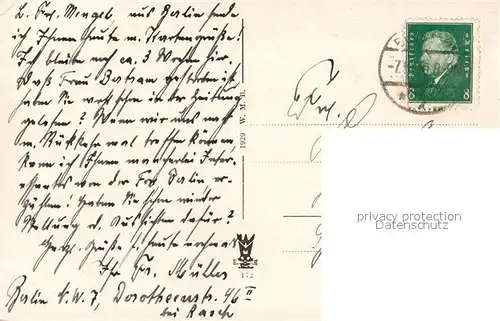 L. Frl. Mengel! Aus Berlin sende
ich Ihnen heute m. Kartengrüße!
Ich bleibe noch ca. 3 Wochen hier.
Daß Frau Bertram gestorben ist
haben Sie wohl schon in der Zeitung
gelesen? Wenn wir uns nach
m. Rückkehr mal treffen können,
kann ich Ihnen mancherlei Inter-
essantes von der Frau Berlin er-
zählen! Haben Sie schon wieder
Stellung od. Aussichten dafür?
Herzl. Grüße f. heute
Ihr Frs. Müller
Berlin N.W.7, Dorotheenstr. 46 II
bei Rasch
1929 W. M. B.
172
Deutsches Reich
8 8
Frl.
privacy protection
Datenschutz